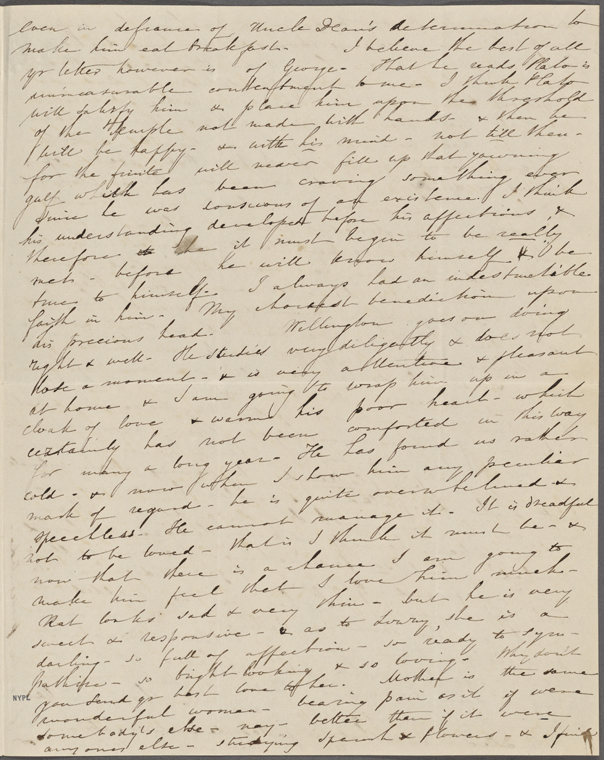 even in defiance of Uncle Dean's determination to
make him eat breakfast. I believe the best of all
yr letter however is of George. That he reads Plato is
unmeasurable contentment to me. I think Plato
will satisfy him & place him upon the threshold
of the Temple not made with hands & then he
will be happy - & with his mind - not till then -
for the finite will never fill up that yawning
gulf which has been craving something ever
since he was conscious of an existence. I think
his understanding developed before his affections, &
therefore it must begin to be really
met - before he will know himself & be
true to himself. I always had an indestructible
faith in him. My choicest benediction upon
his precious head. Wellington goes on doing
right & well. He studies very diligently & does not
lose a moment - & is very attentive & pleasant
at home & I am going to wrap him up in a
cloak of love & warm his poor heart - which
certainly has not been comforted in this way
for many a long year. He has found us rather
cold - & now when I show him any peculiar
mark of regard - he is quite overwhelmed &
speechless. He cannot manage it. It is dreadful
not to be loved - that is I think it must be - &
now that there is a chance I am going to
make him feel that I love him much -
Nat looks sad & very thin - but he is very
sweet & responsive - & as to she is a
darling - so full of affection - so ready to sym-
pathise - so bright looking & so loving. Why don't
you send yr best love to her. Mother is the same
wonderful woman - bearing pain as if it were
somebody's else - nay - better than if it were
anyones else - studying Spanish & flowers - & I
NYPL